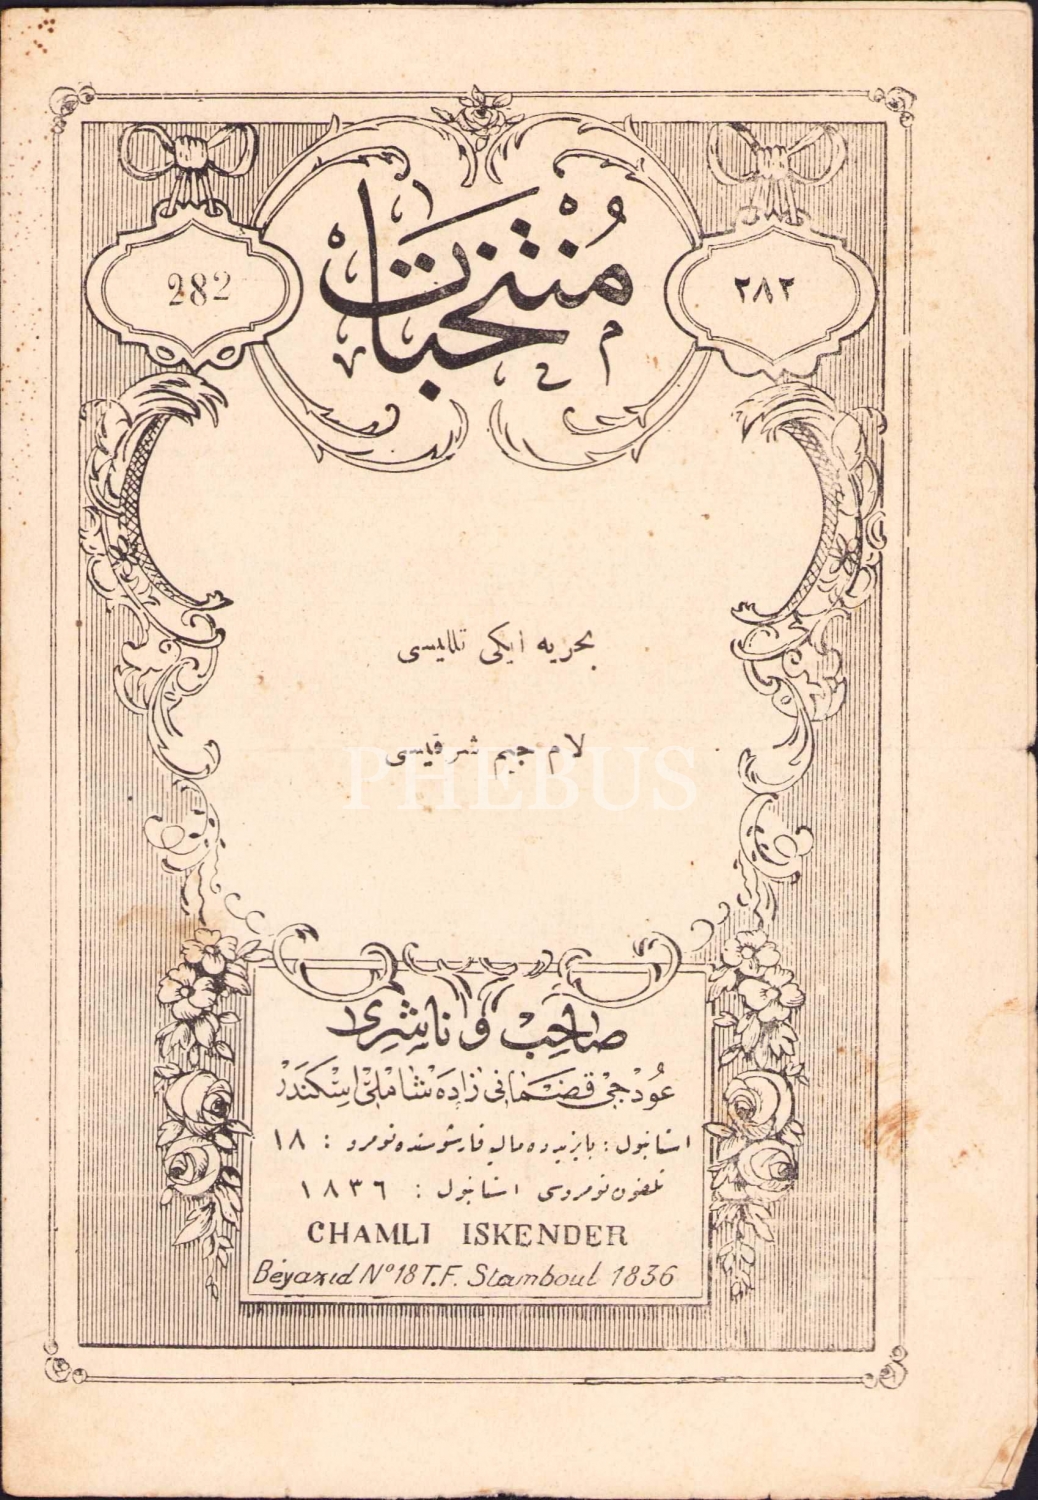 282
منتخبات
٢٨٢
بحریه ایكی تللیسی
لام جیم شرقیسی
PHEBUS
صاحب و ناشری
عودجی قضمانی زاده شاملی اسكندر
استانبول : بایزیدده مالیه قارشوسنده نومرو : ١٨
تلفون نومروسی استانبول : ١٨٣٦
CHAMLI ISKENDER
Béyazıd Nº 18 T.F. Stamboul 1836